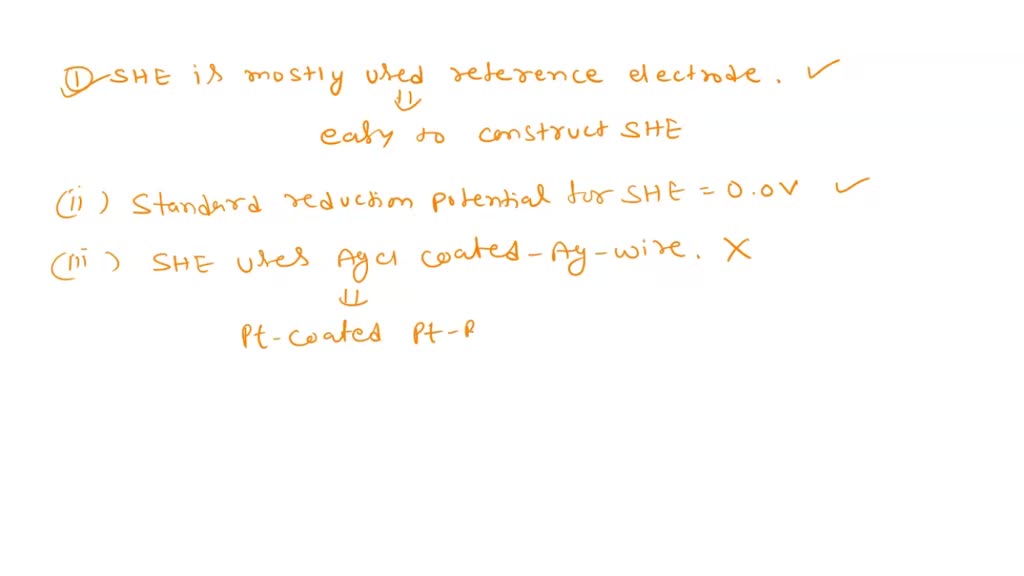 (1) SHE is mostly used reference electrode. ✓
⇓
easy to construct SHE
(ii) Standard reduction potential for SHE = 0.0V ✓
(iii) SHE uses AgCl coated-Ag-wire. X
⇓
Pt-coated Pt-R